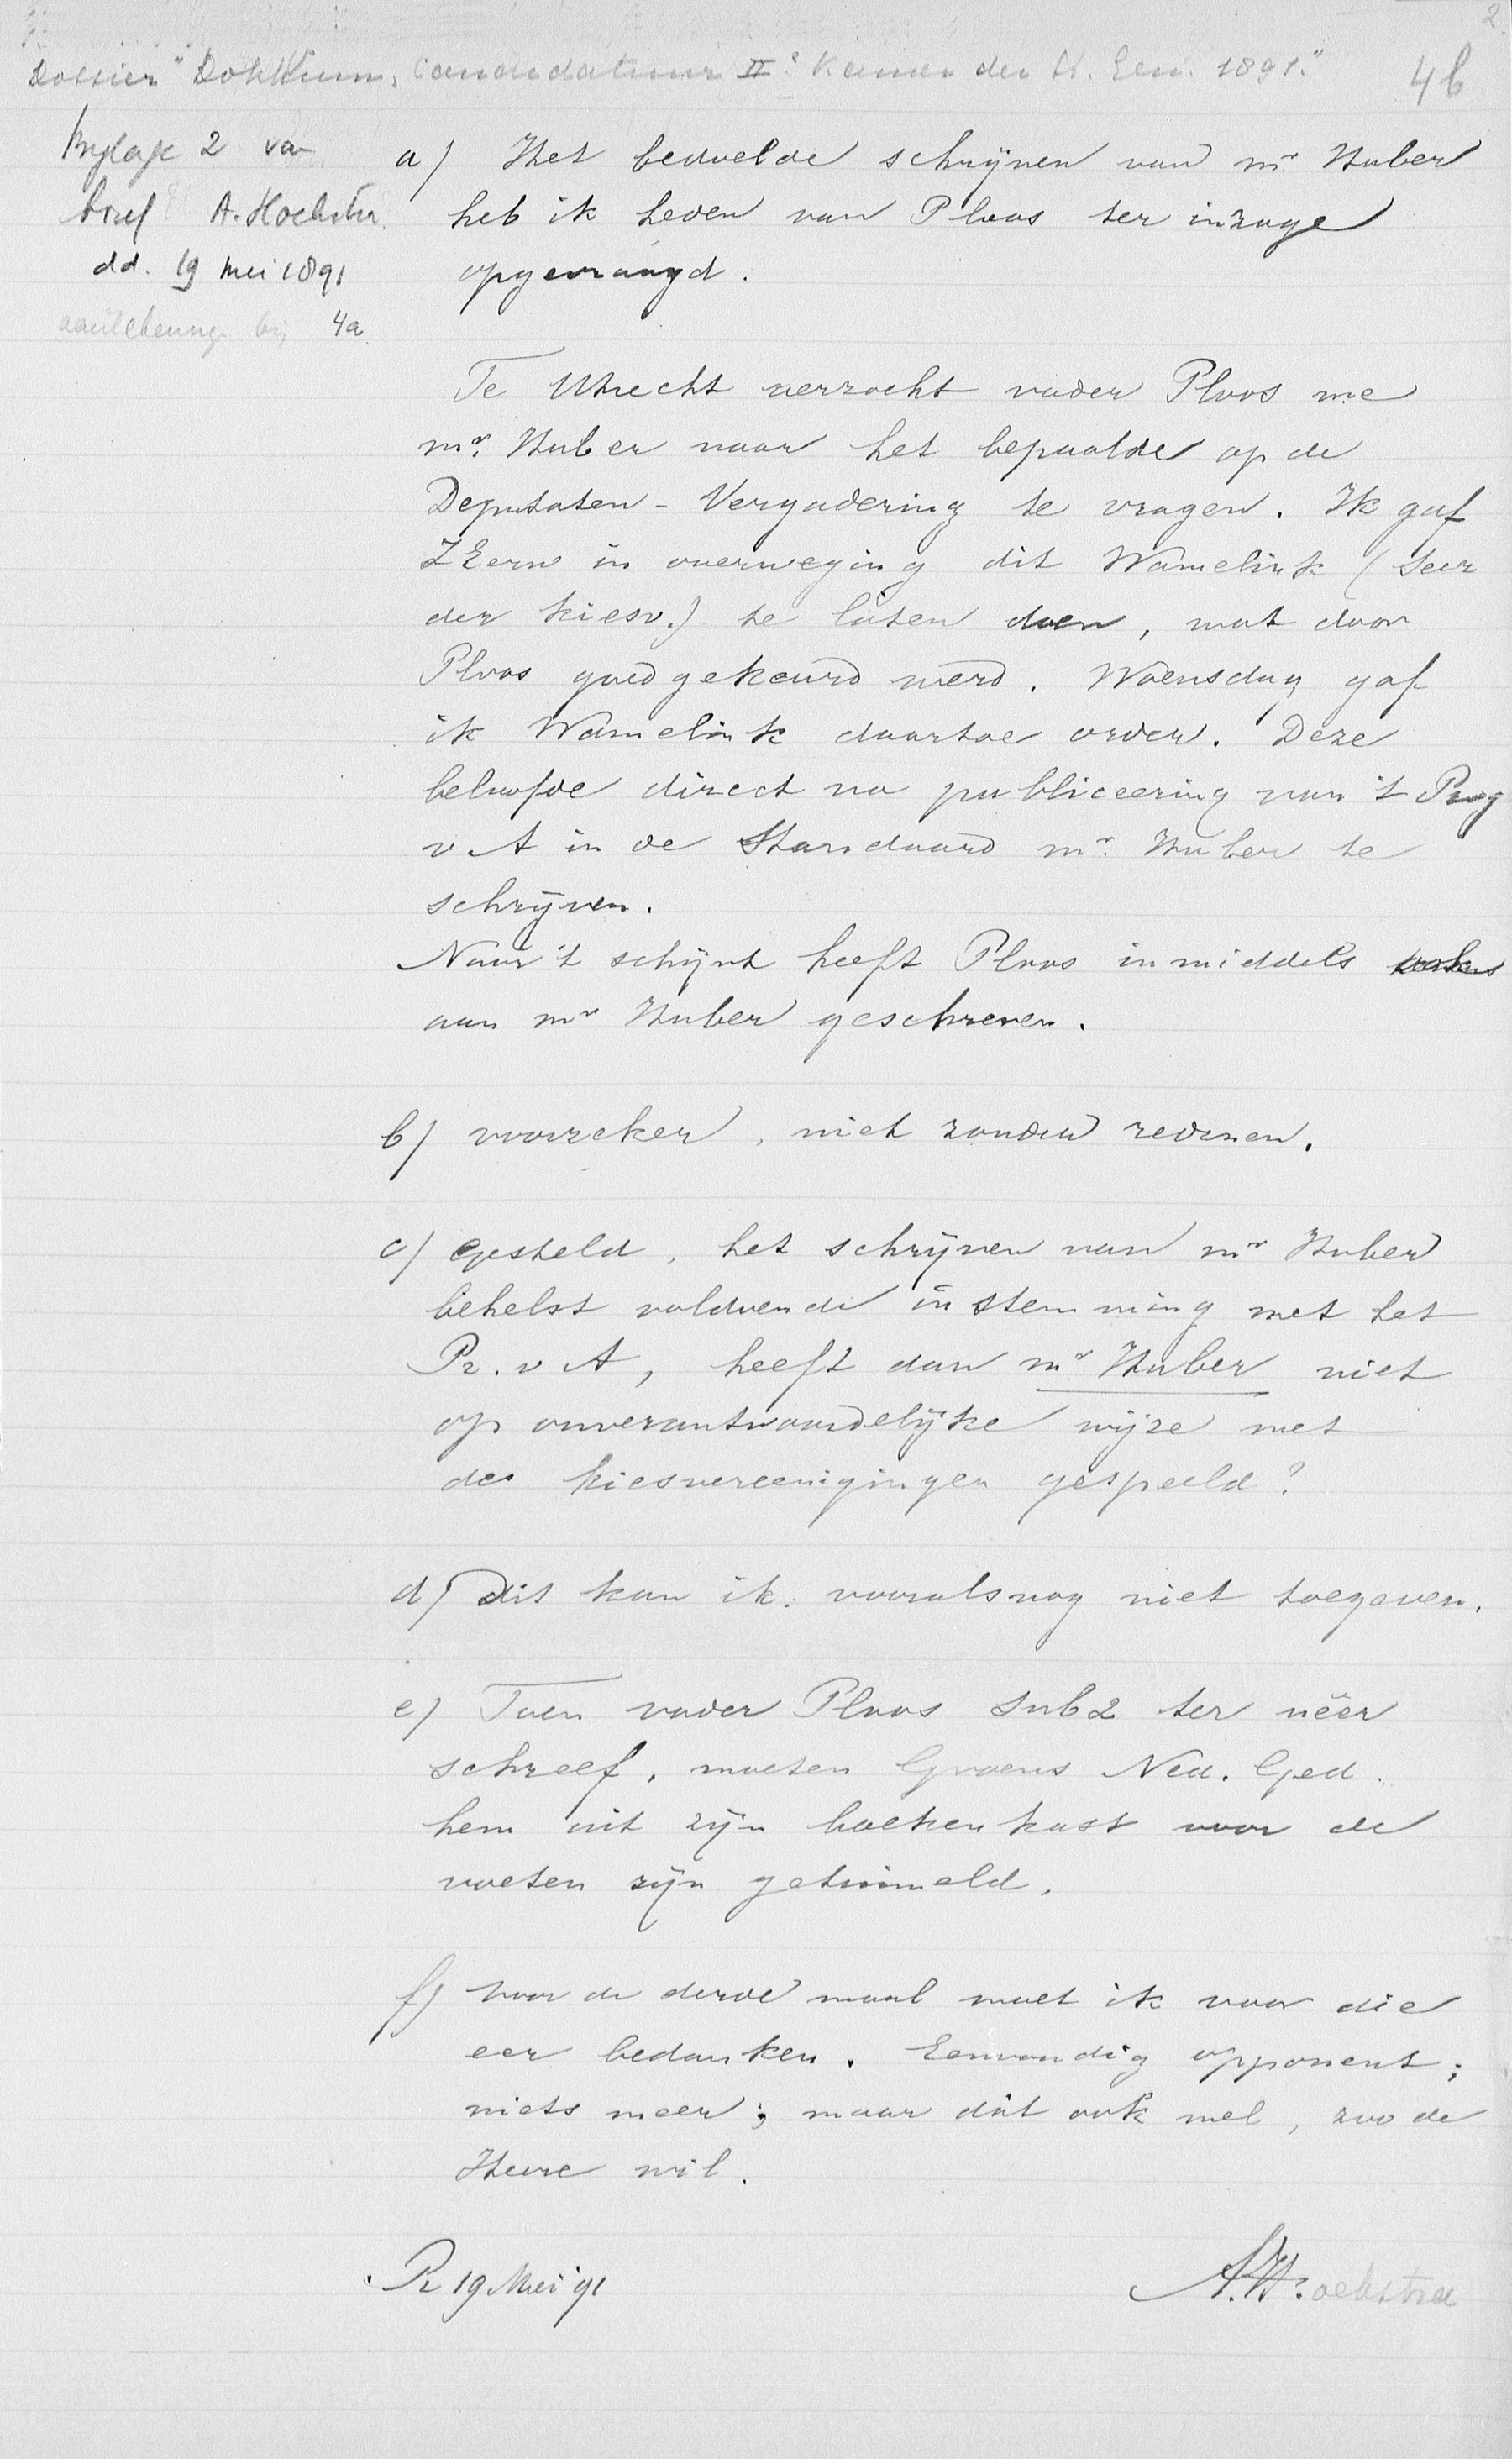 2.
Dossier "Dokkum, Candidatuur IIe Kamer der St. Gen. 1891."
4b
Bijlage 2 van
brief A. Hoekstra
dd. 19 mei 1891
aantekening bij 4a.
a) Het bedoelde schrijven van mr. Huber
heb ik heden van Ploos ter inzage
opgevraagd.
Te Utrecht verzocht vader Ploos me
mr. Huber naar het bepaalde op de
Deputaten-Vergadering te vragen. Ik gaf
ZEerw in overweging dit Wamelink (Secr
der kiesv.) te laten doen, wat door
Ploos goedgekeurd werd. Woensdag gaf
ik Wamelink daartoe order. Deze
beloofde direct na publiceering van 't Prog
v A in de Standaard mr. Huber te
schrijven.
Naar 't schijnt heeft Ploos inmiddels
aan mr Huber geschreven.
b) voorzeker, niet zonder redenen.
c) Gesteld, het schrijven van mr Huber
behelst voldoende instemming met het
Pr. v A, heeft dan mr Huber niet
op onverantwoordelijke wijze met
de kiesvereenigingen gespeeld?
d) Dit kan ik vooralsnog niet toegeven.
e) Toen vader Ploos sub 2 ter neer
schreef, moeten Groens Ned. Ged.
hem uit zijn boekenkast voor de
voeten zijn getuimeld.
f) Voor de derde maal moet ik voor die
eer bedanken. Eenvoudig opponent;
niets meer; maar dat ook wel, zoo de
Heere wil.
R 19 Mei '91
A. Hoekstra